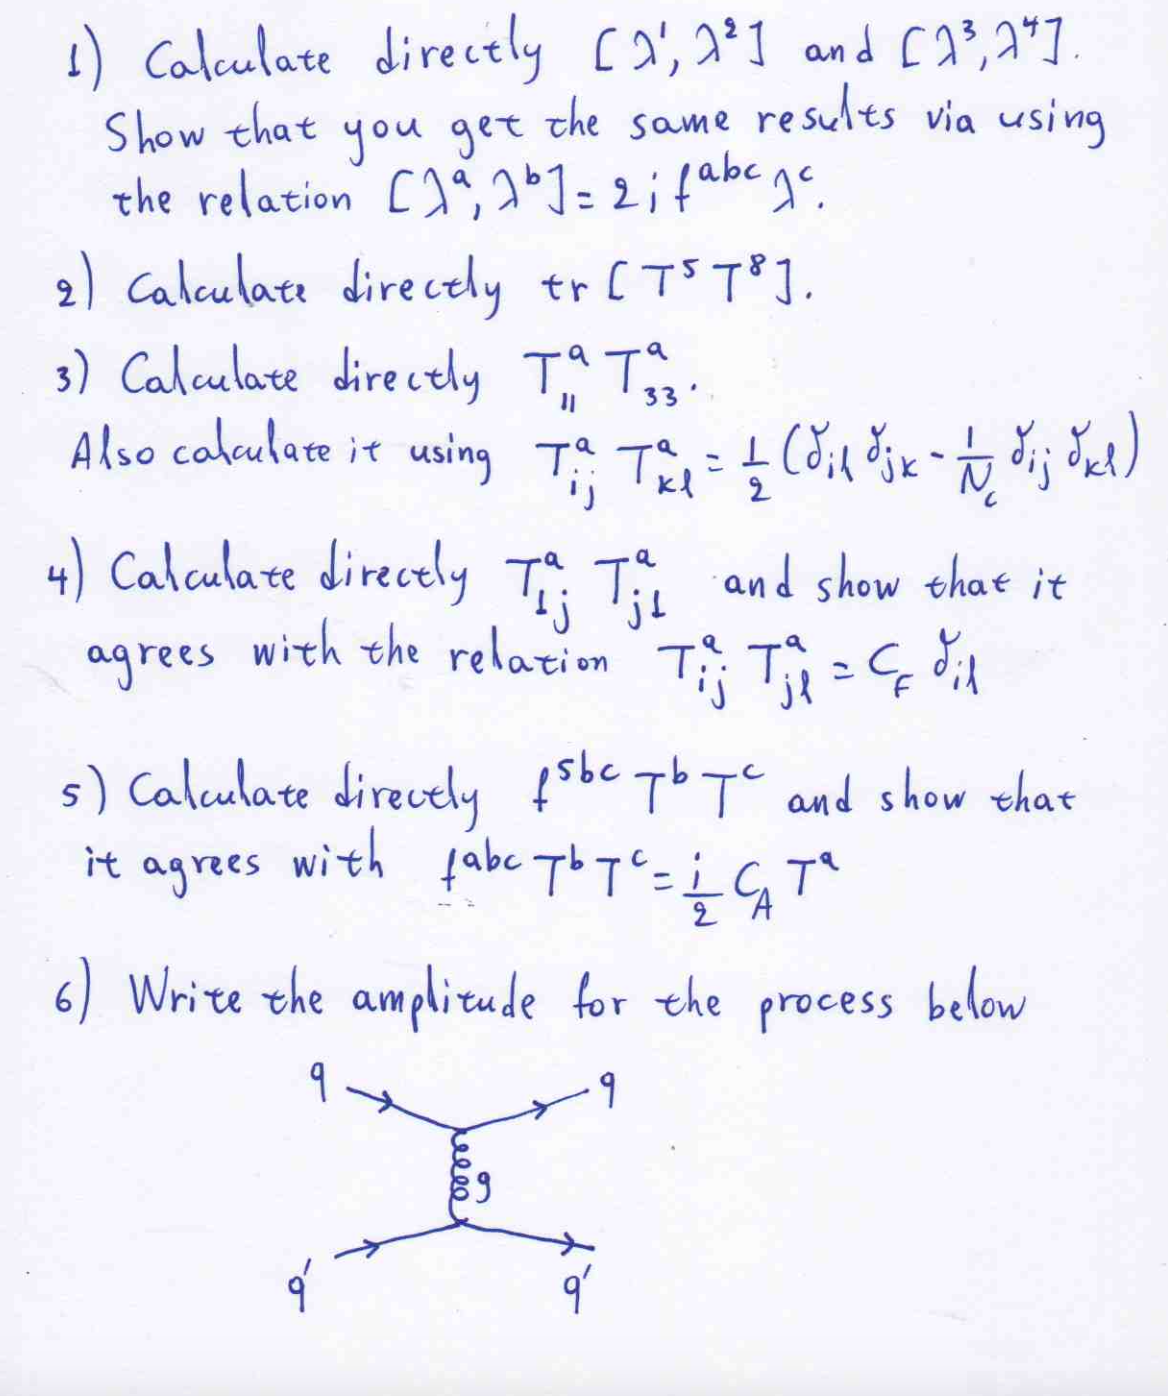 1) Calculate directly [λ¹, λ²] and [λ³, λ⁴].
Show that you get the same results via using
the relation [λᵃ, λᵇ] = 2 i fᵃᵇᶜ λᶜ.
2) Calculate directly tr [T⁵ T⁸].
3) Calculate directly Tᵃ₁₁ Tᵃ₃₃.
Also calculate it using Tᵃ_ij Tᵃ_kl = 1/2 (δ_il δ_jk - 1/N_c δ_ij δ_kl)
4) Calculate directly Tᵃ_1j Tᵃ_j1 and show that it
agrees with the relation Tᵃ_ij Tᵃ_jl = C_F δ_il
5) Calculate directly f⁵ᵇᶜ Tᵇ Tᶜ and show that
it agrees with fᵃᵇᶜ Tᵇ Tᶜ = i/2 C_A Tᵃ
6) Write the amplitude for the process below
q q
g
q′ q′